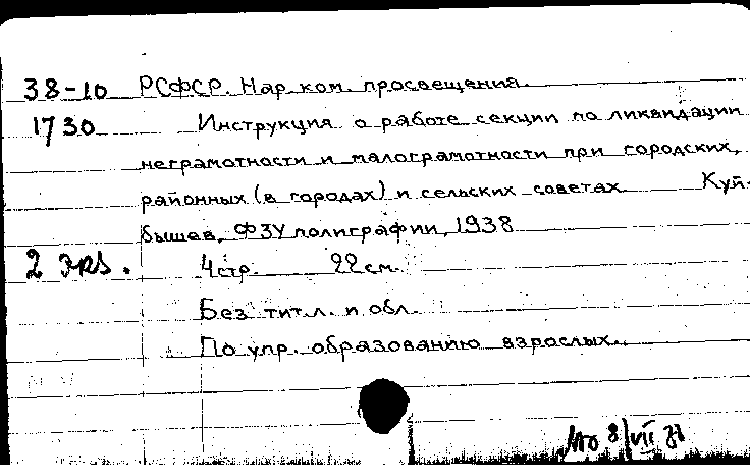 38-10 РСФСР. Нар. ком. просвещения.
1730 Инструкция о работе секции по ликвидации
неграмотности и малограмотности при городских,
районных (в городах) и сельских советах. Куй-
бышев, ФЗУ полиграфии, 1938
2 экз. 4стр. 22см.
Без тит.л. и обл.
По упр. образованию взрослых.
8/VII